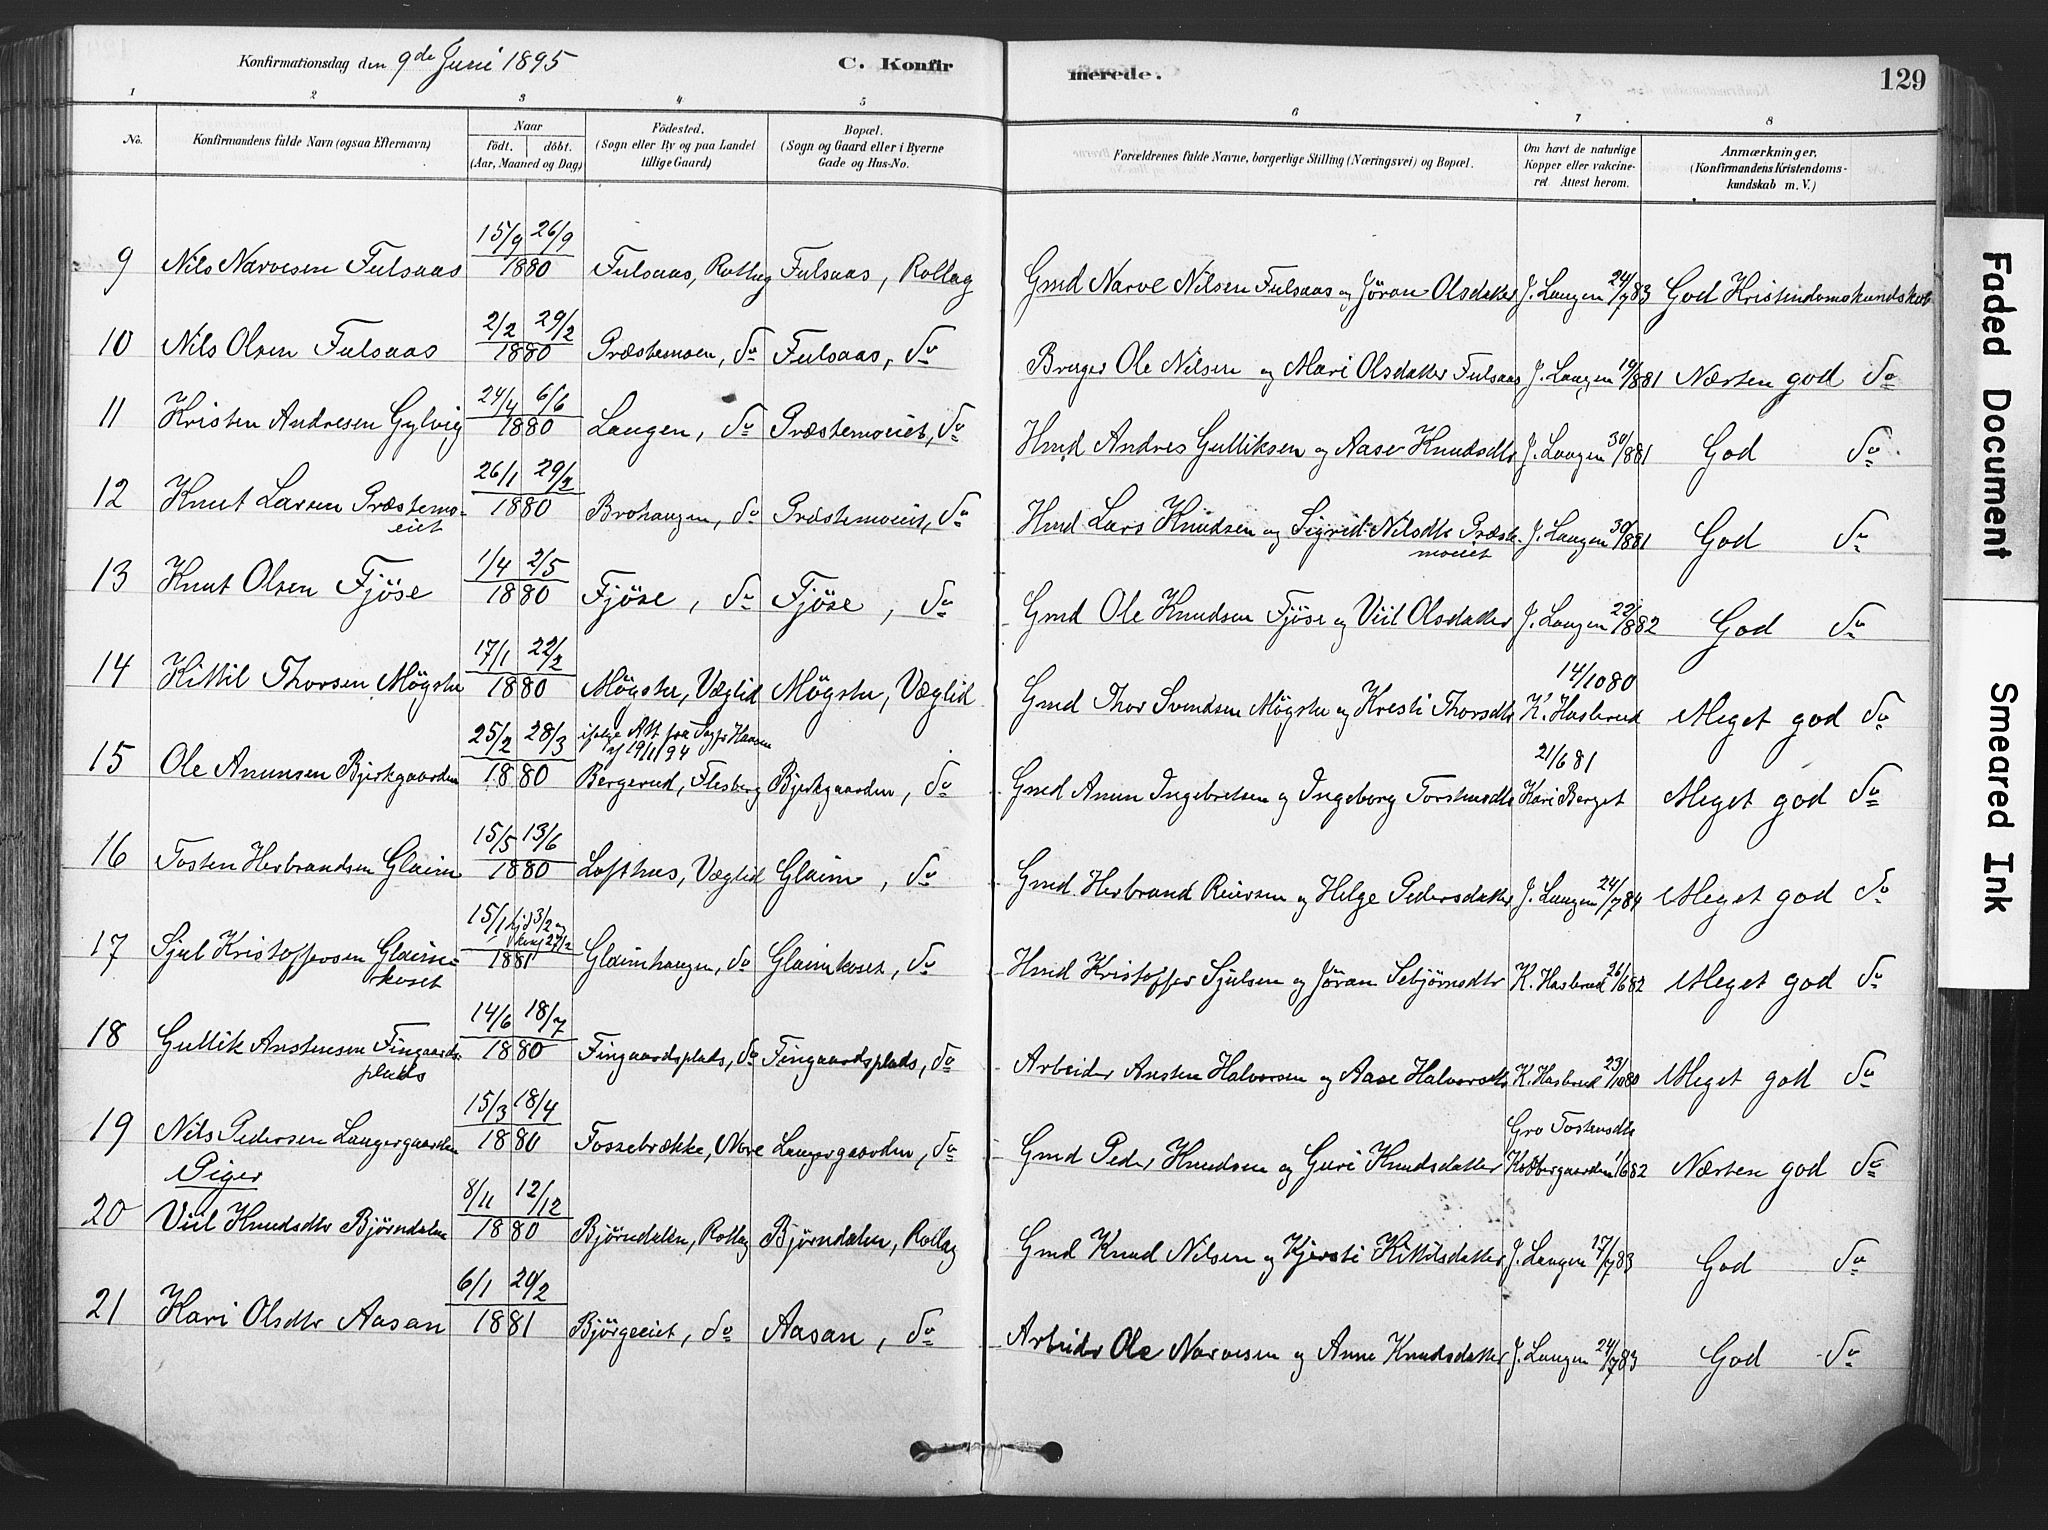 Konfirmationsdag den 9de Juni 1895
C. Konfirmerede.
129
1 2 3 4 5 6 7 8
No.
Konfirmandens fulde Navn (ogsaa Efternavn)
Naar
födt. döbt.
(Aar, Maaned og Dag)
Födested.
(Sogn eller By og paa Landet tillige Gaard)
Bopæl.
(Sogn og Gaard eller i Byerne Gade og Hus-No.
Forældrenes fulde Navne, borgerlige Stilling (Næringsvei) og Bopæl.
Om havt de naturlige Kopper eller vakcineret. Attest herom.
Anmærkninger.
(Konfirmandens Kristendomskundskab m. V.)
9 Nils Narvesen Fulsaas 15/9 26/9 1880 Fulsaas, Rollag Fulsaas, Rollag Gmd Narve Nilsen Fulsaas og Jöran Olsdatter J. Laugen 24/7 83 God Kristendomskundskab
10 Nils Olsen Fulsaas 2/2 29/2 1880 Præstemoen, do Fulsaas, do Bruger Ole Nilsen og Mari Olsdatter Fulsaas J. Laugen 19/8 81 Næsten god do
11 Kristen Andresen Gylvig 24/4 6/6 1880 Laugen, do Præstemoeiet, do Hmd Andres Gulliksen og Aase Knudsdtr J. Laugen 30/8 81 God do
12 Knut Larsen Præstemoeiet 26/1 29/2 1880 Brohaugen, do Præstemoeiet, do Hmd Lars Knudsen og Sigrid Nilsdtr Præstemoeiet J. Laugen 30/8 81 God do
13 Knut Olsen Fjöse 1/4 2/5 1880 Fjöse, do Fjöse, do Gmd Ole Knudsen Fjöse og Viil Olsdatter J. Laugen 22/8 82 God do
14 Kittil Thorsen Mögster 17/1 22/2 1880 Mögster, Væglid Mögster, Væglid Gmd Thor Svendsen Mögster og Kresti Thorsdtr 14/10 80 K. Hasbrud Meget god do
15 Ole Anunsen Bjerkgaarden 25/2 28/3 1880 ifölge Att. fra Sogpr Hansen af 19/11 94 Bergerud, Flesberg Bjerkgaarden, do Gmd Anun Ingebretsen og Ingeborg Torstensdtr 21/6 81 Kari Berget Meget god do
16 Tosten Herbrandsen Glaim 15/5 13/6 1880 Lofthus, Væglid Glaim, do Gmd. Herbrand Reiersen og Helge Pedersdatter J. Laugen 24/7 84 Meget god do
17 Sjul Kristoffersen Glaimkoset 15/1 hjd 3/2 og kirg 27/2 1881 Glaimhaugen, do Glaimkoset, do Hmd Kristoffer Sjulsen og Jöran Sebjörnsdtr K. Hasbrud 26/6 82 Meget god do
18 Gullik Anstensen Fingaardsplads 14/6 18/7 1880 Fingaardsplads, do Fingaardsplads, do Arbeider Ansten Halvorsen og Aase Halvorsdtr K. Hasbrud 23/10 80 Meget god do
19 Nils Pedersen Laugergaarden 15/3 18/4 1880 Fossebrække, Nore Laugergaarden, do Gmd Peder Knudsen og Guri Knudsdatter Gro Tostensdtr Kobbergaarden 1/6 82 Næsten god do
Piger
20 Viil Knudsdtr Björndalen 8/11 12/12 1880 Björndalen, Rollag Björndalen, Rollag Gmd Knud Nilsen og Kjersti Kittilsdatter J. Laugen 17/7 83 God do
21 Kari Olsdtr Aasan 6/1 20/2 1881 Björgeeiet, do Aasan, do Arbeider Ole Narvesen og Anne Knudsdatter J. Laugen 24/7 83 God do
Faded Document
Smeared Ink